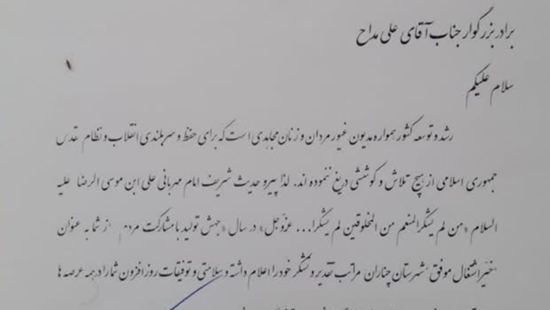 برادر بزرگوار جناب آقای علی مداح
سلام علیکم
رشد و توسعه کشور همواره مدیون غیور مردان و زنان مجاهدی است که برای حفظ و سربلندی انقلاب و نظام مقدس
جمهوری اسلامی از هیچ تلاش و کوششی دریغ ننموده اند. لذا پیرو حدیث شریف امام مهربانی علی ابن موسی الرضا علیه
السلام «من لم یشکر المنعم من المخلوقین لم یشکرا... عزوجل» در سال «جهش تولید با مشارکت مردم» از شما به عنوان
خیر اشتغال موفق شهرستان چناران مراتب تقدیر و تشکر خود را اعلام داشته و سلامتی و توفیقات روز افزون شما را در همه عرصه ها